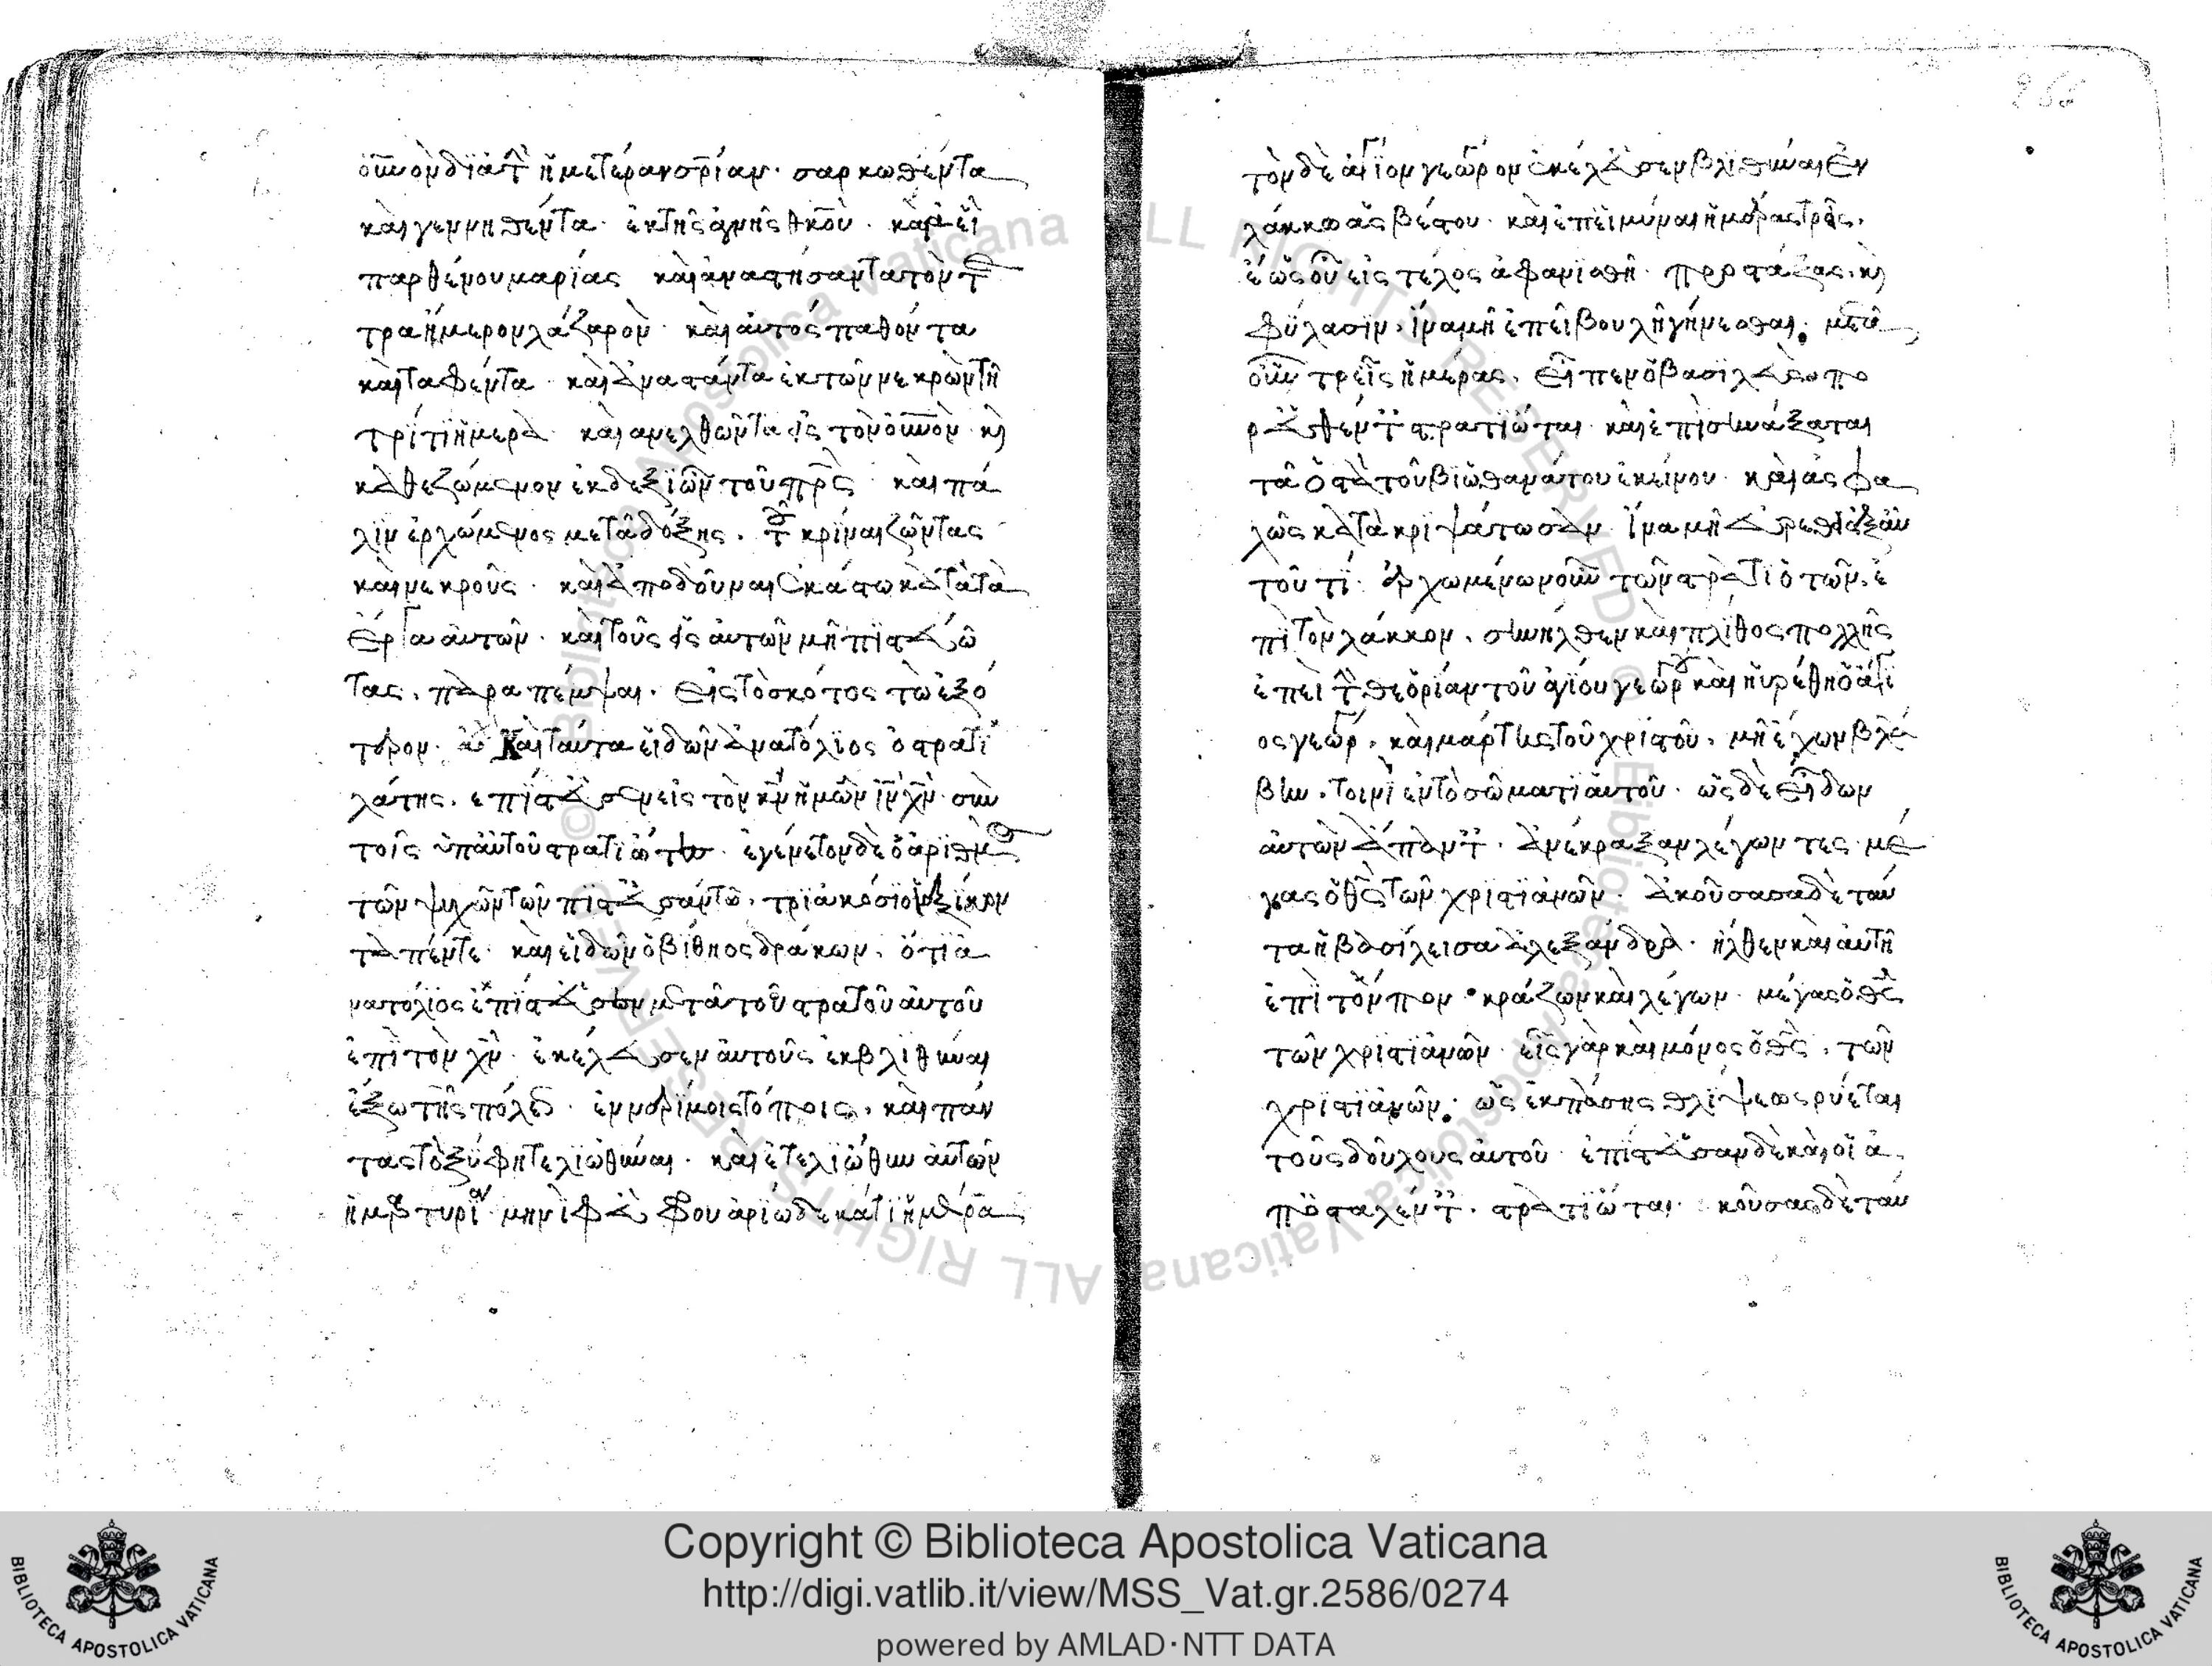 οὐνον διὰ τ ἡμετέραν σρίαν· σαρκωθέντα
καὶ γεννηθέντα· ἐκ τῆς ἁγνῆς θκου· καὶ ἀεὶ
παρθένου μαρίας καὶ ἀναστήσαντα τὸν τε
τραήμερον λάζαρον· καὶ αὐτὸς παθόντα
καὶ ταφέντα· καὶ ἀναστάντα ἐκ τῶν νεκρῶν τῆ
τρίτι ἡμερα καὶ ανελθῶντα εἰς τὸν οὐνὸν κὶ
καθεζώμενον ἐκ δεξιῶν τοῦ πρς· καὶ πά
λιν ἐρχώμενος μετὰ δόξης. κρίναι ζῶντας
καὶ νεκροὺς· καὶ ἀποδοῦναι ἑκάστω κατὰ τὰ
ἔργα αὐτῶν· καὶ τοῦς εἰς αὐτῶν μὴ πϊσταύω
τας, παραπέμψαι. εἰς τὸ σκότος τὼ ἐξό
τερον. Καὶ ταύτα εἰδὼν ἀνατόλϊος ὁ στρατϊ
λάτης. επϊσταυσεν εἰς τὸν κν ἡμῶν ιν χν· σὺν
τοῖς ὑπ' αὐτοῦ στρατϊώτων· ἐγένετον δὲ ὁ ἀριθμὸς
τῶν ψυχῶν τῶν πϊσταυσάντω. τρϊακόσιοι ἑξίκον
τα πέντε· καὶ εἰδὼν ὁ βίθηος δράκων. ὅτι ἀ
νατόλϊος ἐπϊσταυσεν μετὰ τοῦ στρατοῦ αὐτοῦ
ἐπὶ τὸν χν· ἐκέλαυσεν αὐτοῦς ἐκβλιθηναι
ἔξω τῆς πόλεως· ἐν νερίμοις τόποις. καὶ πάν
τας τὸ ξύφη τελϊωθηναι· καὶ ἐτελϊώθην αὐτῶν
ἡ μαρτυρία μηνὶ φαυρουαρίω δεκάτϊ ἡμέρα
τὸν δὲ ἅγϊον γεώρ ον ἐκέλαυσεν βλϊθηναι ἐν
λάκκω ἀσβέστου· καὶ ἐπϊμύναι ἡμέρας τρεῖς.
ἕως οῦ εἰς τέλος ἀφανϊσθῆ· προστάξας. κὶ
φύλασϊν. ἵνα μὴ ἐπεῖβουλῆ γήνεσθαι. μετὰ
οὖν τρεῖς ἡμέρας. εἶπεν ὁ βασϊλαὺς πο
ραυθέντ στρατϊῶται· καὶ ἐπϊσυνάξαται
τὰ ὀστᾶ τοῦ βϊωθανάτου ἐκείνου· καὶ ἀσφα
λῶς κατακρϊψάτωσαν ἵνα μὴ αὑρεθῆ ἐξ αὐ
τοῦ τί· ἐρχωμένων οὖν τῶν στρατϊοτῶν. ἐ
πὶ τὸν λάκκον. συνηλθεν καὶ πλίθος πολλῆς
ἐπεὶ τ θεορίαν τοῦ ἁγίου γεώρ καὶ ηὑρέθη ὁ ἅγι
ος γεώρ. καὶ μάρτυς τοῦ χριστοῦ. μὴ ἔχων βλά
βην. τοινὶ ἐν τὸ σώματι αὐτοῦ· ὡς δὲ εἶδων
αὐτὼν ἅπαντ. ἀνέκραξαν λέγωντες. μέ
γας ὁ θς τῶν χριστϊανῶν. ἀκούσασα δὲ ταύ
τα ἡ βασίλεισα ἀλεξάνδρα· ἦλθεν καὶ αὐτὴ
ἐπϊ τόνπον κράζων καὶ λέγων· μέγας ὁ θς
τῶν χριστϊανῶν· εἷς γὰρ καὶ μόνος ὁ θς. τῶν
χριστϊανῶν. ὡς ἐκ πάσης θλίψεως ρύεται
τοῦς δούλους αὐτοῦ· ἐπϊσταυσαν δὲ καὶ οἱ ἀ
ποσταλέντ. στρατϊῶται. κούσας δὲ ταύ
Copyright © Biblioteca Apostolica Vaticana
http://digi.vatlib.it/view/MSS_Vat.gr.2586/0274
powered by AMLAD·NTT DATA
BIBLIOTECA APOSTOLICA VATICANA
BIBLIOTECA APOSTOLICA VATICANA